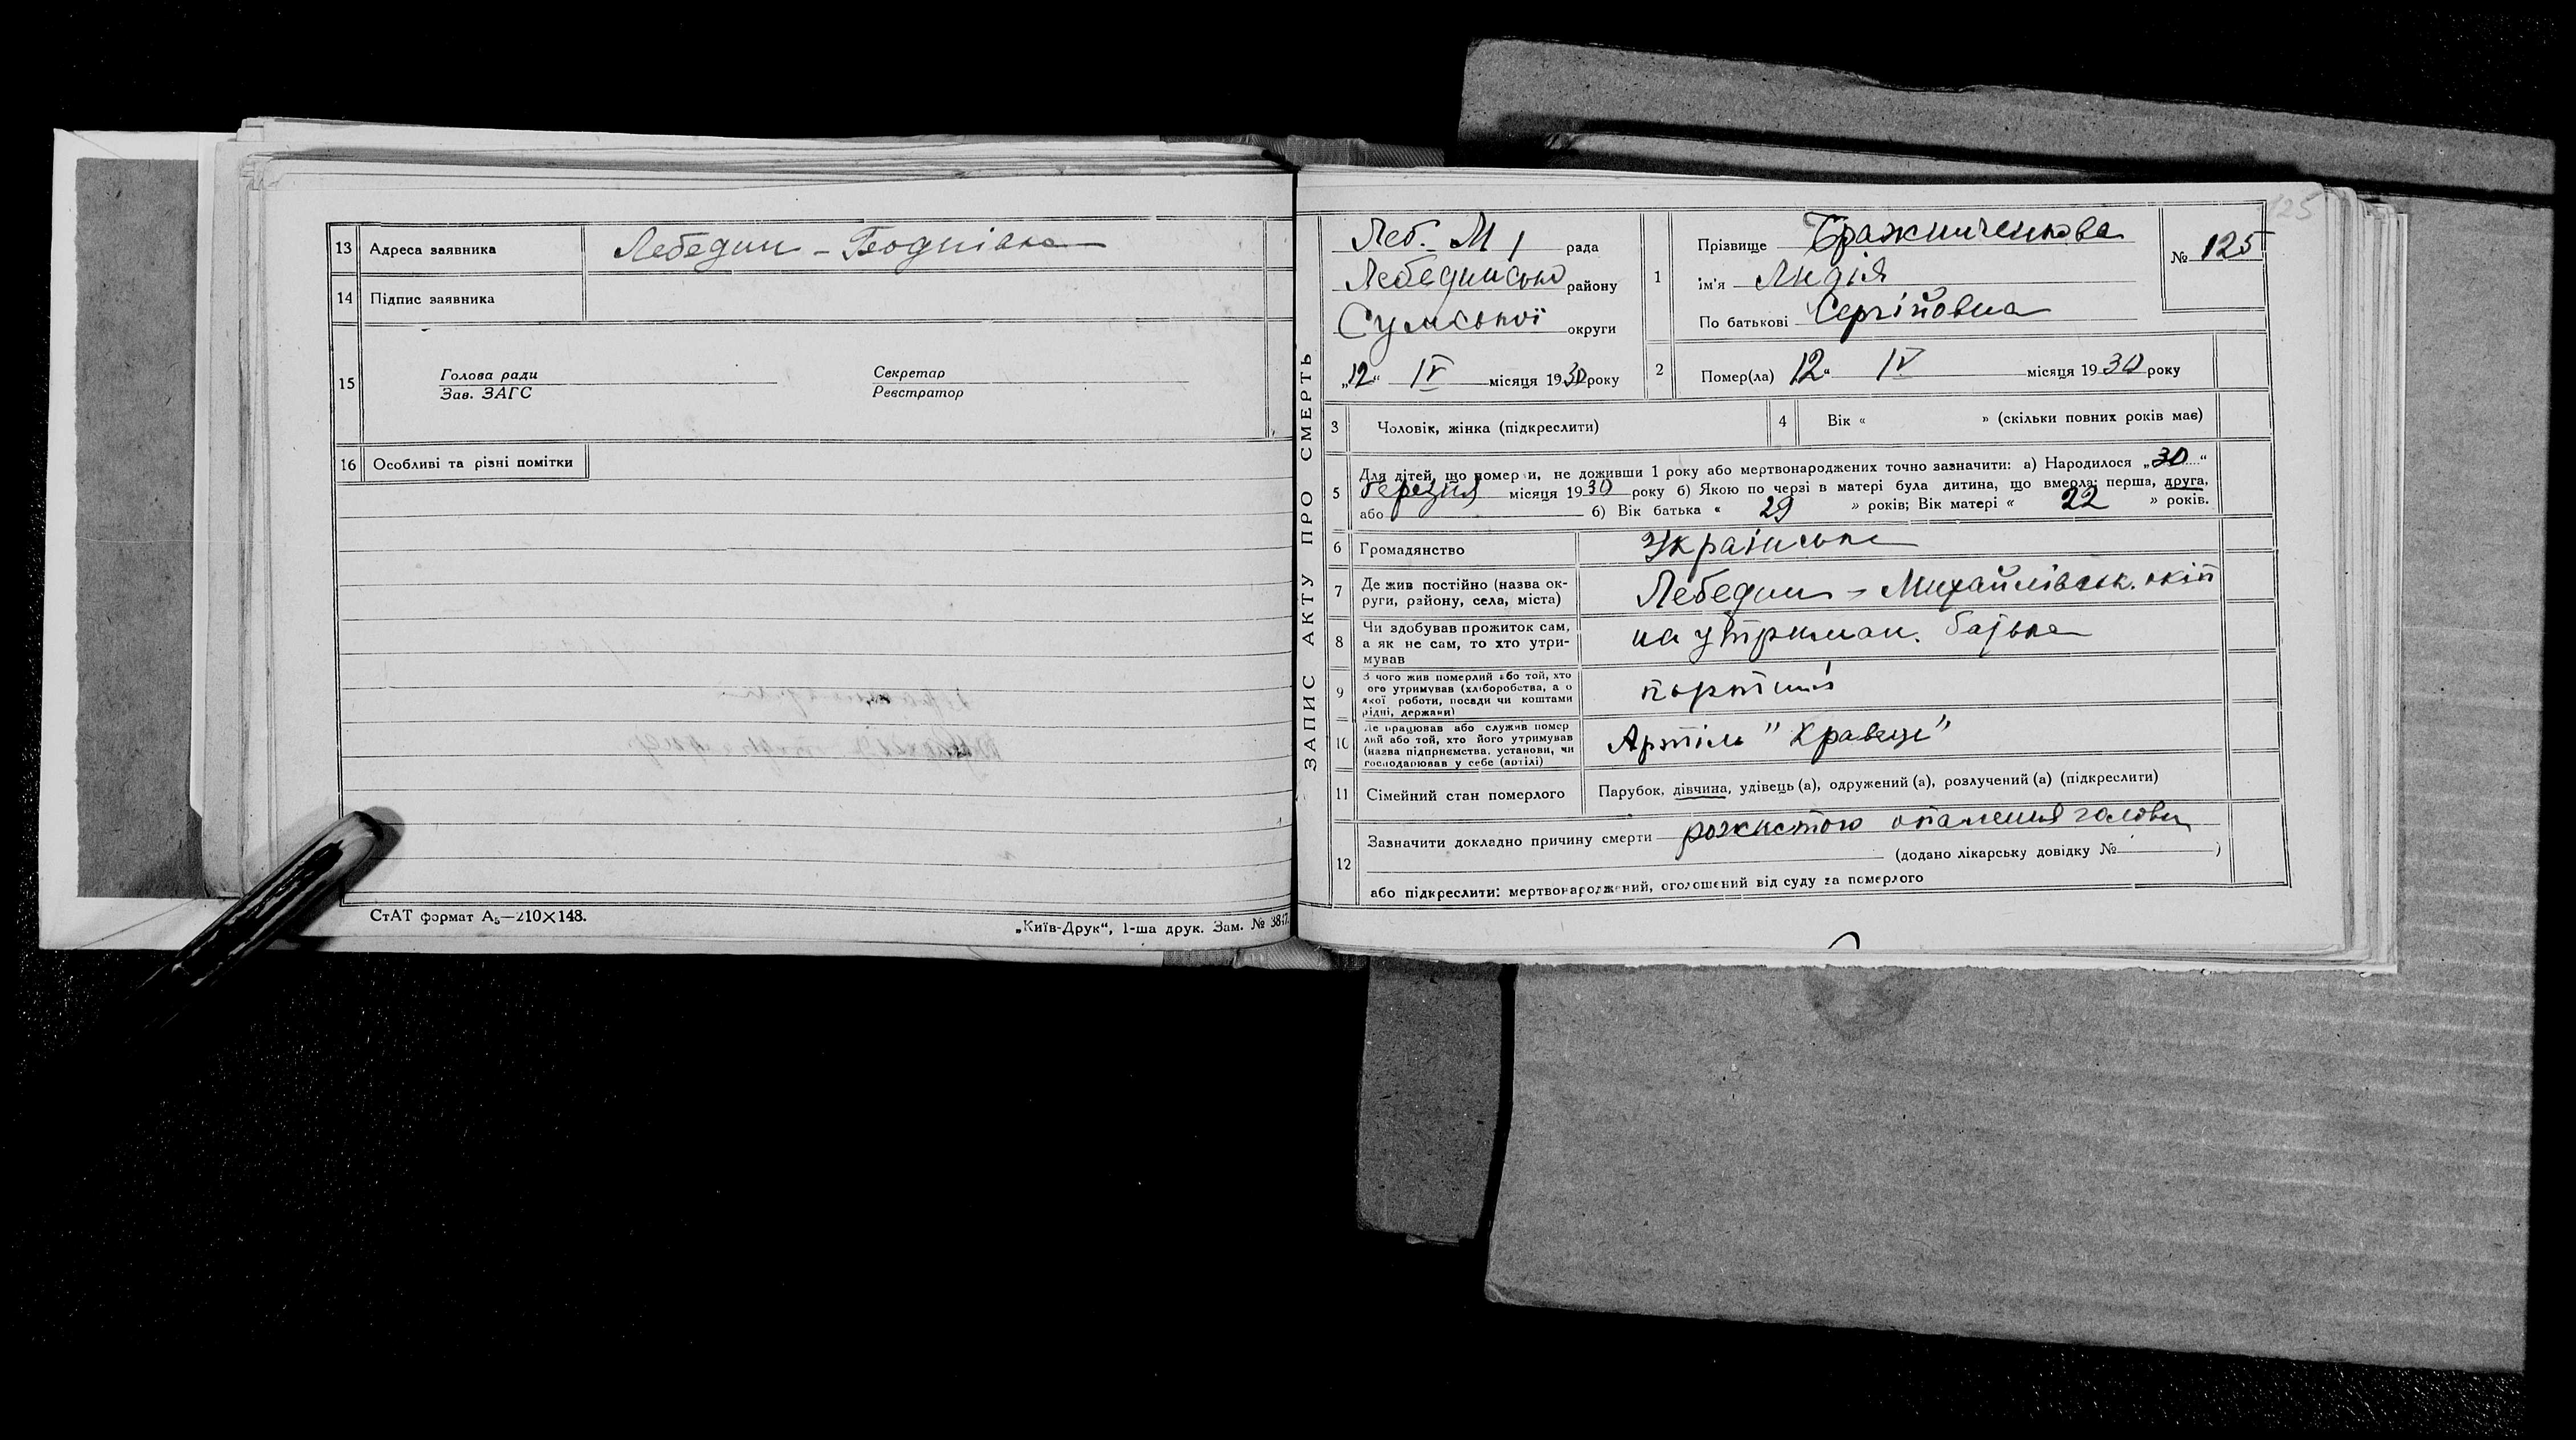 13 Адреса заявника Лебедин – Боднівка
14 Підпис заявника
15 Голова ради Секретар
Зав. ЗАГС Реєстратор
16 Особливі та різні помітки
СтАТ формат А₅—210×148.
„Київ-Друк“, 1-ша друк. Зам. № 3817.
ЗАПИС АКТУ ПРО СМЕРТЬ
125
Леб. М 1 рада
Лебединсько району
Сумської округи
„12“ IV місяця 1930 року
1 Прізвище Бражниченкова
ім'я Лидія
По батькові Сергіїовна
№ 125
2 Помер(ла) 12“ IV місяця 1930 року
3 Чоловік, жінка (підкреслити)
4 Вік « » (скільки повних років має)
5 Для дітей, що померли, не доживши 1 року або мертвонароджених точно зазначити: а) Народилося „30“
березня місяця 1930 року б) Якою по черзі в матері була дитина, що вмерла: перша, друга,
або б) Вік батька « 29 » років; Вік матері « 22 » років.
6 Громадянство Українське
7 Де жив постійно (назва ок-
руги, району, села, міста) Лебедин – Михайлівськ. окіп
8 Чи здобував прожиток сам,
а як не сам, то хто утри-
мував на утриман. батька
9 З чого жив померлий або той, хто
ого утримував (хліборобства, а о
якої роботи, посади чи коштами
рідні, держави) портний
10 Де працював або служив помер
лий або той, хто його утримував
(назва підприємства, установи, чи
господарював у себе (артілі) Артіль "Кравець"
11 Сімейний стан померлого Парубок, дівчина, удівець (а), одружений (а), розлучений (а) (підкреслити)
12 Зазначити докладно причину смерти рожистою опалення голови
(додано лікарську довідку № )
або підкреслити: мертвонароджений, оголошений від суду за померлого